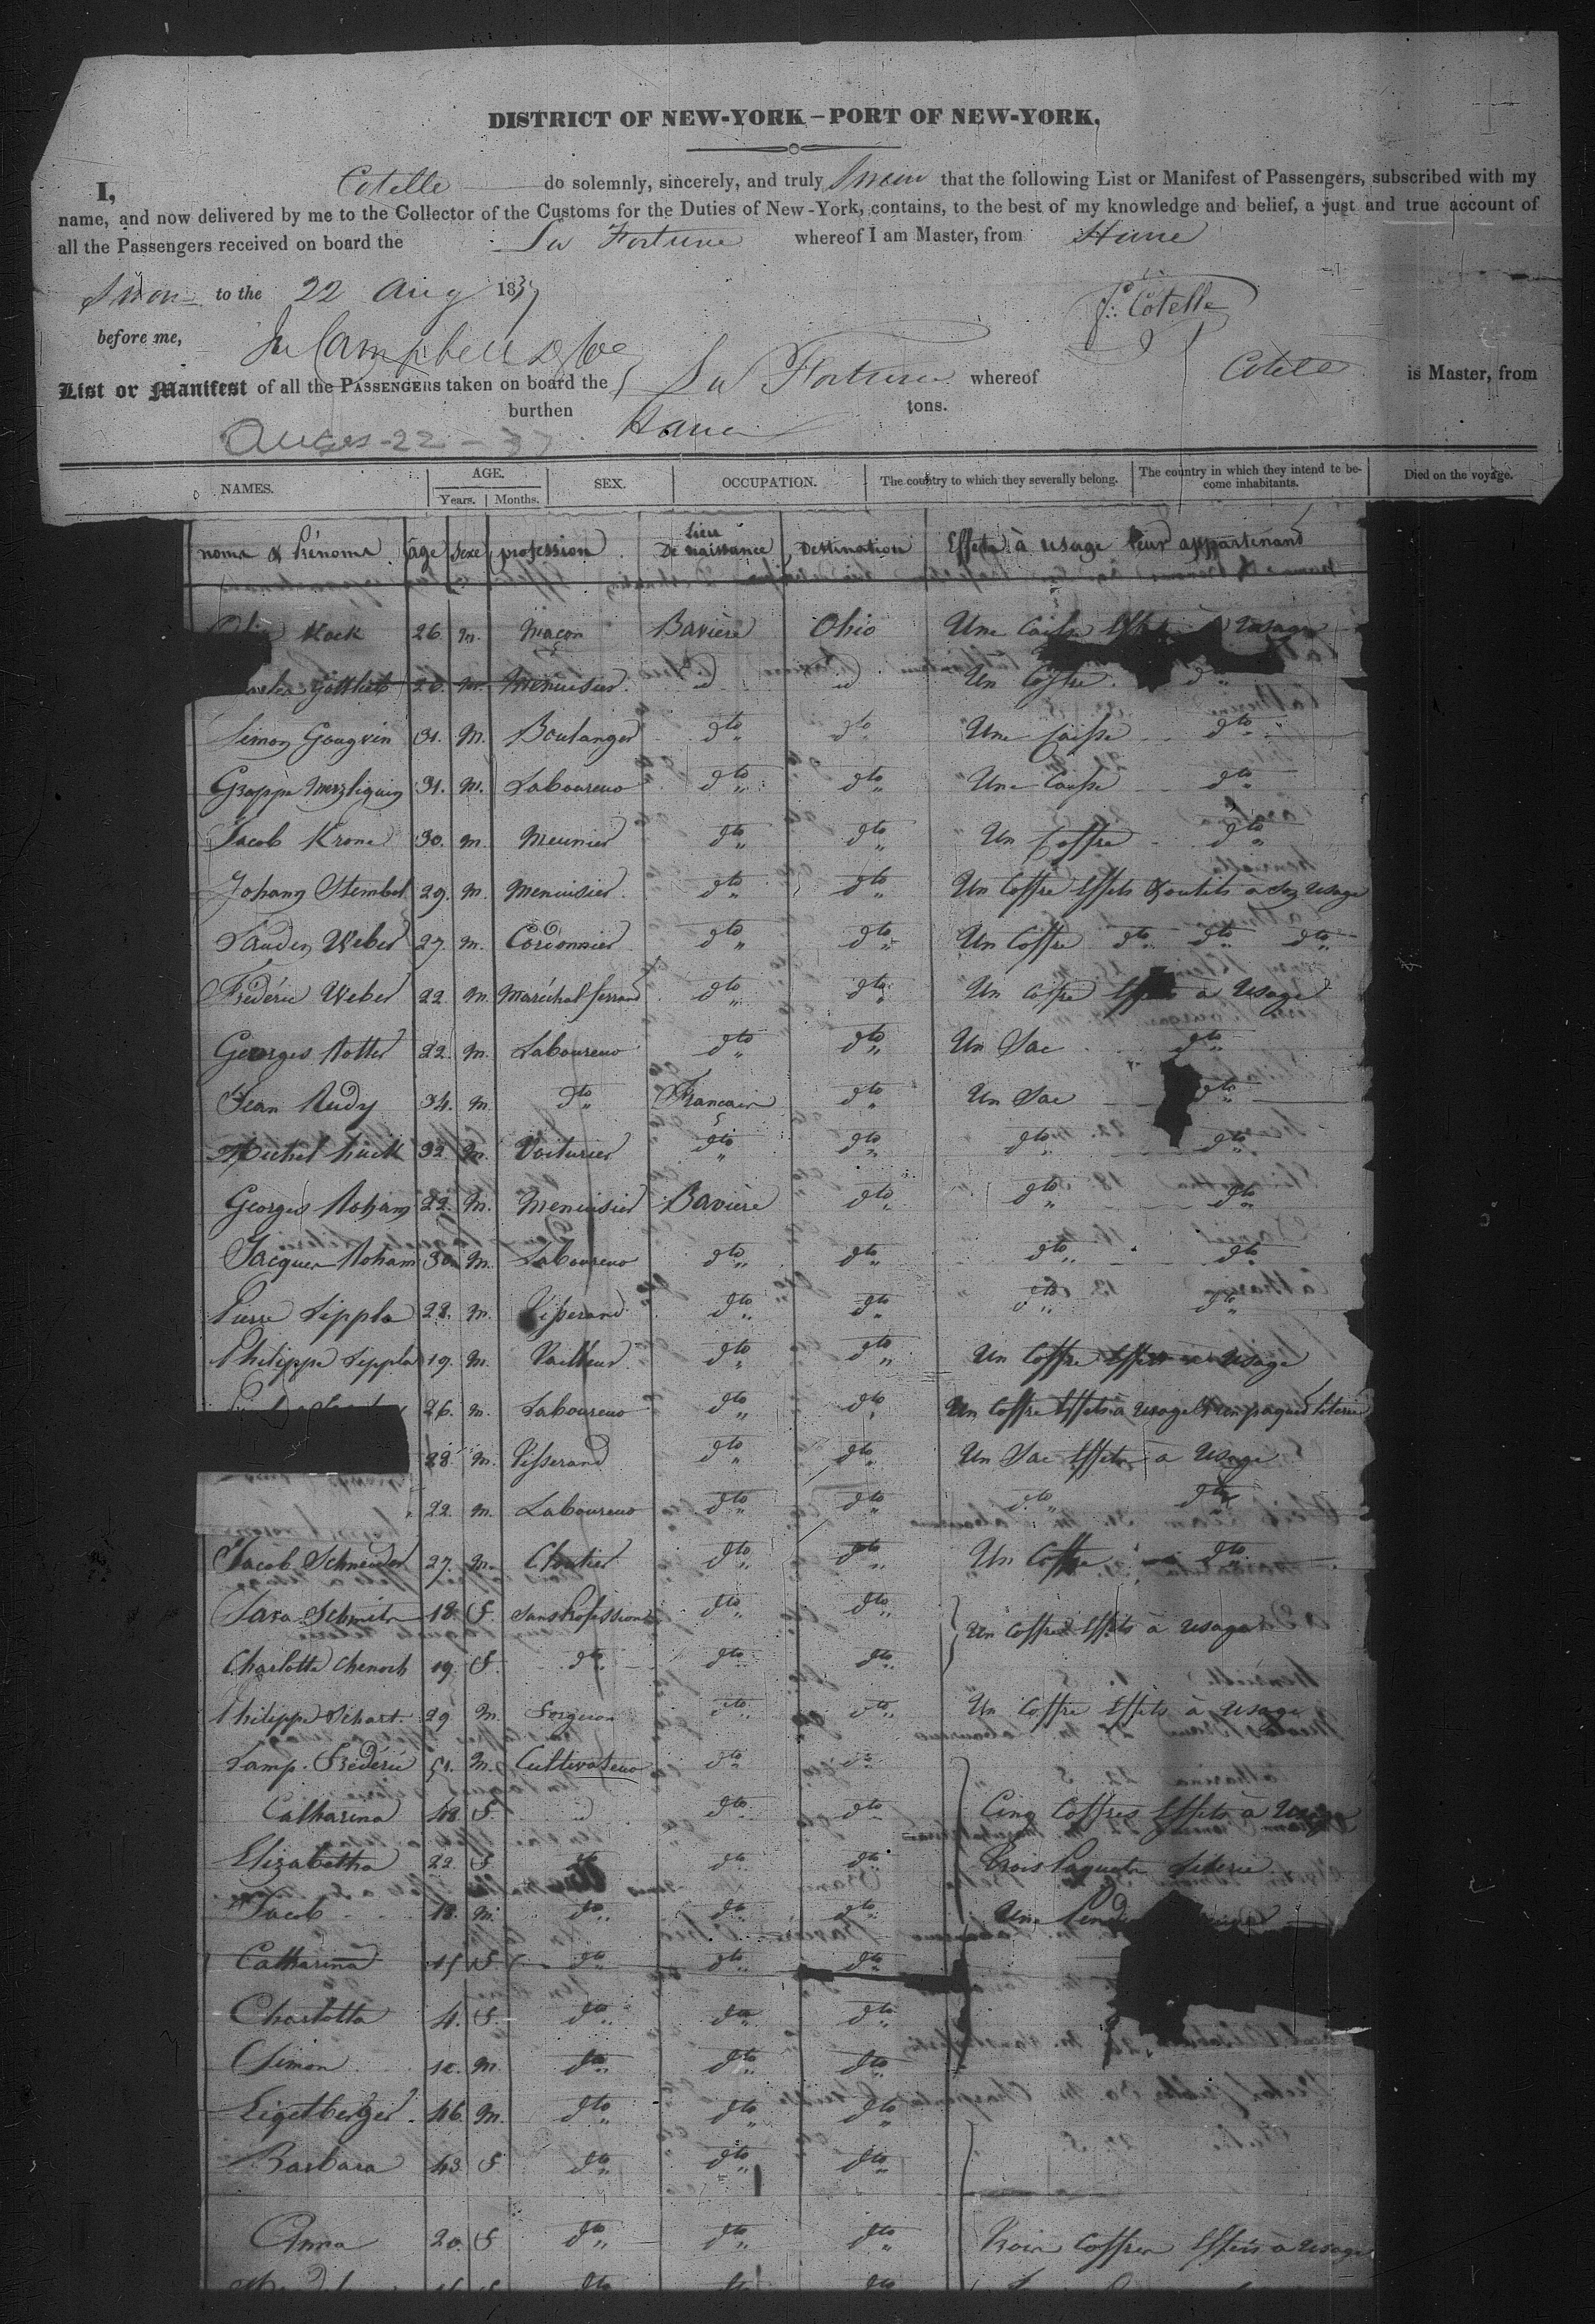 DISTRICT OF NEW-YORK – PORT OF NEW-YORK.
I, Cotelle do solemnly, sincerely, and truly Swear that the following List or Manifest of Passengers, subscribed with my
name, and now delivered by me to the Collector of the Customs for the Duties of New-York, contains, to the best of my knowledge and belief, a just and true account of
all the Passengers received on board the La Fortune whereof I am Master, from Havre
Sworn to the 22 Aug 1837
F. Cotelle
before me,
List or Manifest of all the PASSENGERS taken on board the La Fortune whereof Cotelle is Master, from
burthen tons.
Havre
22 - 37
NAMES. AGE. Years. Months. SEX. OCCUPATION. The country to which they severally belong. The country in which they intend to become inhabitants. Died on the voyage.
noms & Prénoms age Sexe profession Lieu De naissance Destination Effets à usage leur appartenant
Kock 26. m. Macon Bavière Ohio Une Caisse Effets à usage
Gottlieb 26. m. Menuisier. d d Un Coffre d"
Simon Gougvin 31. M. Boulanger dto dto Une Caisse dto
31. m. Laboureur dto dto Une Caisse dto
Jacob Krone 30. m. Meunier dto dto Un Coffre dto
Johann Stembel 29. m. Menuisier. dto dto Un Coffre Effets & outils a son usage
Weber 27. m. Cordonnier dto dto Un Coffre dto dto dto
Frédéric Weber 22. m. Maréchal ferrand dto dto Un Coffre Effets a Usage
Georges Rotter 22. m. Laboureur dto dto Un Sac dto
Jean Rudy 34. m. dto Francais dto Un Sac dto
Michel 32. m. Voiturier dto dto dto dto
Georges Roham 22. M. Menuisier Bavière dto dto dto
Jacques Roham 30 m. Laboureur dto dto dto dto
Pierre Sippla 28. m. Tisserand dto dto dto dto
Philippe Sippla 19. m. Tailleur dto dto Un Coffre Effets a Usage
26. m. Laboureur dto dto Un Coffre Effets à usage & un paquet literie
28 m. Tisserand dto dto Un Sac Effets a Usage
22. m. Laboureur dto dto dto dto
Jacob Schneider 27. m. dto dto Un Coffre dto
Sara Schmitr 18. f. Sans Profession dto dto Un Coffre Effets à usage
Charlotte Chenoch 19. f. dto dto dto
Philippe Schart. 29 m. Forgeron dto dto Un Coffre Effets à usage
Lamp. Frédéric 51. m. Cultivateur dto dto
Catharina 48 f. d dto dto Cinq Coffres Effets à Usage
Elizabetha 22. f. dto dto Trois Paquets Literie
Jacob 18. m. dto dto dto Une
Catharina 15 f. dto dto dto
Charlotta 4. f. dto dto dto
Simon 10. m. dto dto dto
Eigelberger. 46. m. dto dto dto
Barbara 43 f dto dto dto
Anna 20. f dto dto dto Trois Coffres Effets a usage